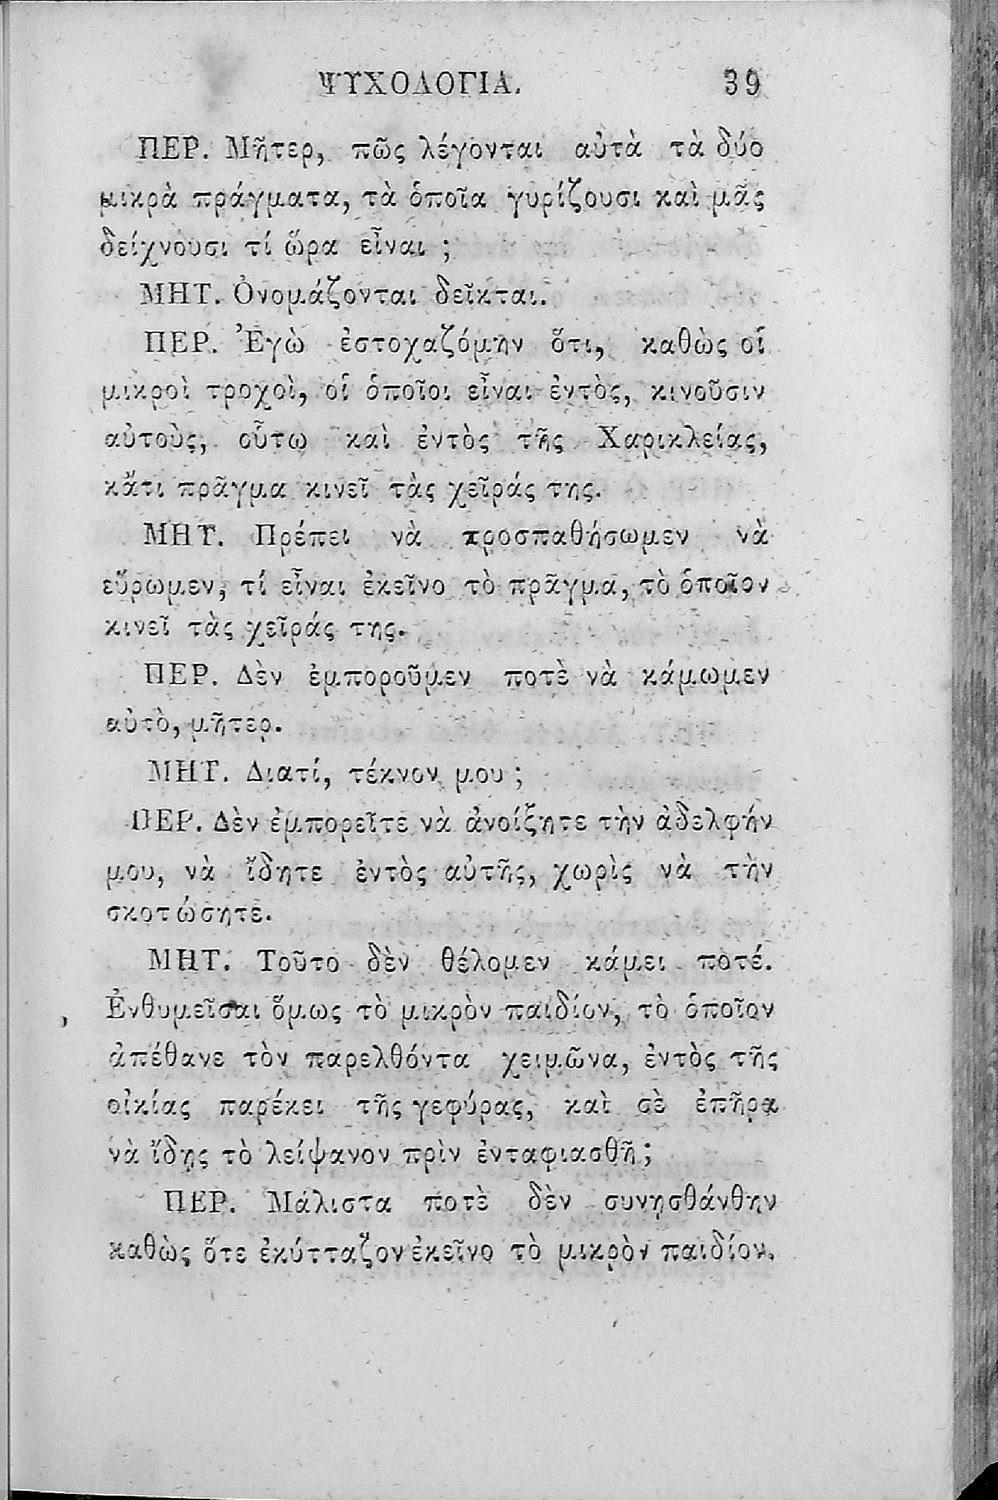 ΨΥΧΟΛΟΓΙΑ. 39
ΠΕΡ. Μῆτερ, πῶς λέγονται αὐτὰ τὰ δύο
μικρὰ πράγματα, τὰ ὁποῖα γυρίζουσι καὶ μᾶς
δείχνουσι τί ὥρα εἶναι ;
ΜΗΤ. Ὀνομάζονται δεῖκται.
ΠΕΡ. Ἐγὼ ἐστοχαζόμην ὅτι, καθὼς οἱ
μικροὶ τροχοὶ, οἱ ὁποῖοι εἶναι ἐντὸς, κινοῦσιν
αὐτοὺς, οὕτω καὶ ἐντὸς τῆς Χαρικλείας,
κᾄτι πρᾶγμα κινεῖ τὰς χεῖράς της.
ΜΗΤ. Πρέπει νὰ προσπαθήσωμεν νὰ
εὕρωμεν, τί εἶναι ἐκεῖνο τὸ πρᾶγμα, τὸ ὁποῖον
κινεῖ τὰς χεῖράς της.
ΠΕΡ. Δὲν ἐμποροῦμεν ποτὲ νὰ κάμωμεν
αὐτὸ, μῆτερ.
ΜΗΤ. Διατί, τέκνον μου ;
ΠΕΡ. Δὲν ἐμπορεῖτε νὰ ἀνοίξητε τὴν ἀδελφήν
μου, νὰ ἴδητε ἐντὸς αὐτῆς, χωρὶς νὰ τὴν
σκοτώσητε.
ΜΗΤ. Τοῦτο δὲν θέλομεν κάμει ποτέ.
Ἐνθυμεῖσαι ὅμως τὸ μικρὸν παιδίον, τὸ ὁποῖον
ἀπέθανε τὸν παρελθόντα χειμῶνα, ἐντὸς τῆς
οἰκίας παρέκει τῆς γεφύρας, καὶ σὲ ἐπῆρα
νὰ ἴδῃς τὸ λείψανον πρὶν ἐνταφιασθῇ ;
ΠΕΡ. Μάλιστα ποτὲ δὲν συνῃσθάνθην
καθὼς ὅτε ἐκύτταζον ἐκεῖνο τὸ μικρὸν παιδίον.